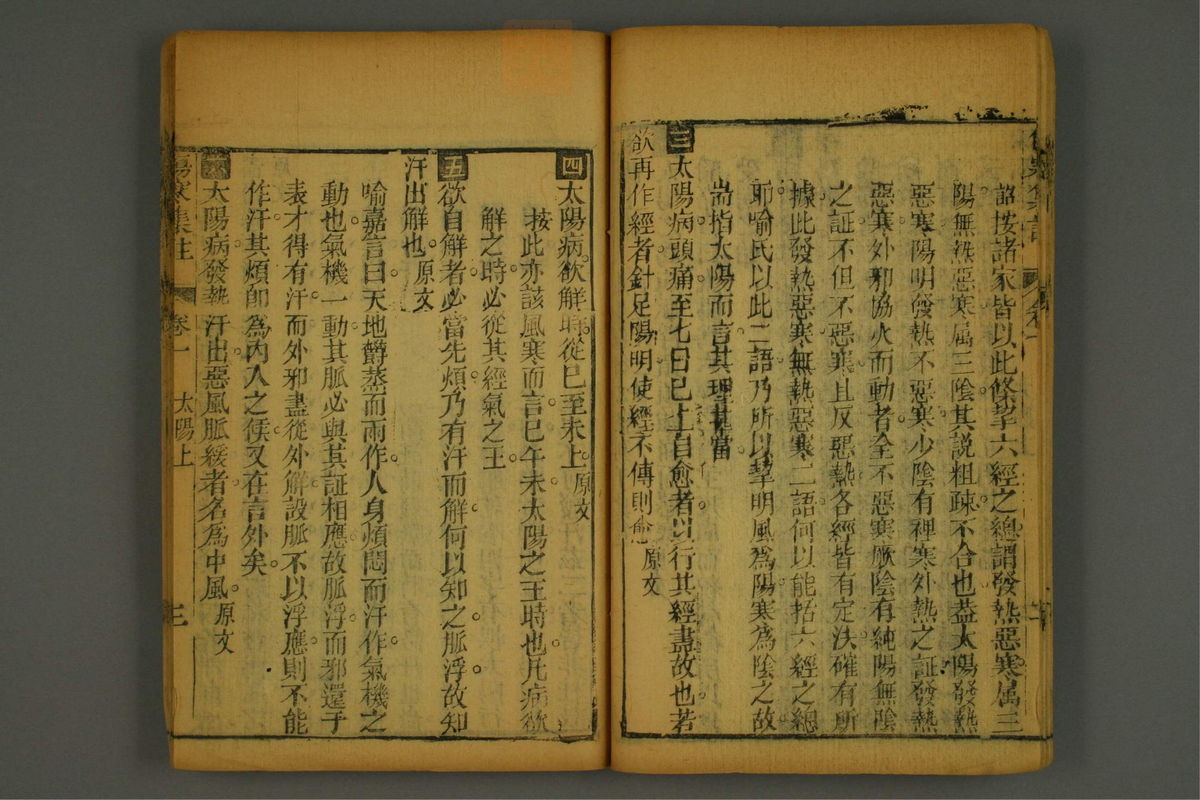 詔按諸家皆以此條挈六經之總謂發熱惡寒属三
陽無熱惡寒属三陰其説粗疎不合也盖太陽發熱
惡寒陽明發熱不惡寒少陰有裡寒外熱之証發熱
惡寒外邪協火而動者全不惡寒厥陰有純陽無陰
之証不但不惡寒且反惡熱各經皆有定決確有所
據此發熱惡寒無熱惡寒二語何以能括六經之總
耶喻氏以此二語乃所以挈明風為陽寒為陰之故
耑指太陽而言其理甚當
三太陽病頭痛至七日已上自愈者以行其經盡故也若
欲再作經者針足陽明使經不傳則愈原文
傷寒集註 卷一
四太陽病欲解時從巳至未上原文
按此亦該風寒而言巳午未太陽之王時也凡病欲
解之時必從其經氣之王
五欲自解者必當先煩乃有汗而解何以知之脈浮故知
汗出解也原文
喻嘉言曰天地爵蒸而雨作人身煩悶而汗作氣機之
動也氣機一動其脈必與其証相應故脈浮而邪還于
表才得有汗而外邪盡從外解設脈不以浮應則不能
作汗其煩卽為內入之候又在言外矣
六太陽病發熱汗出惡風脈緩者名為中風原文
傷寒集註 卷一 太陽上 三